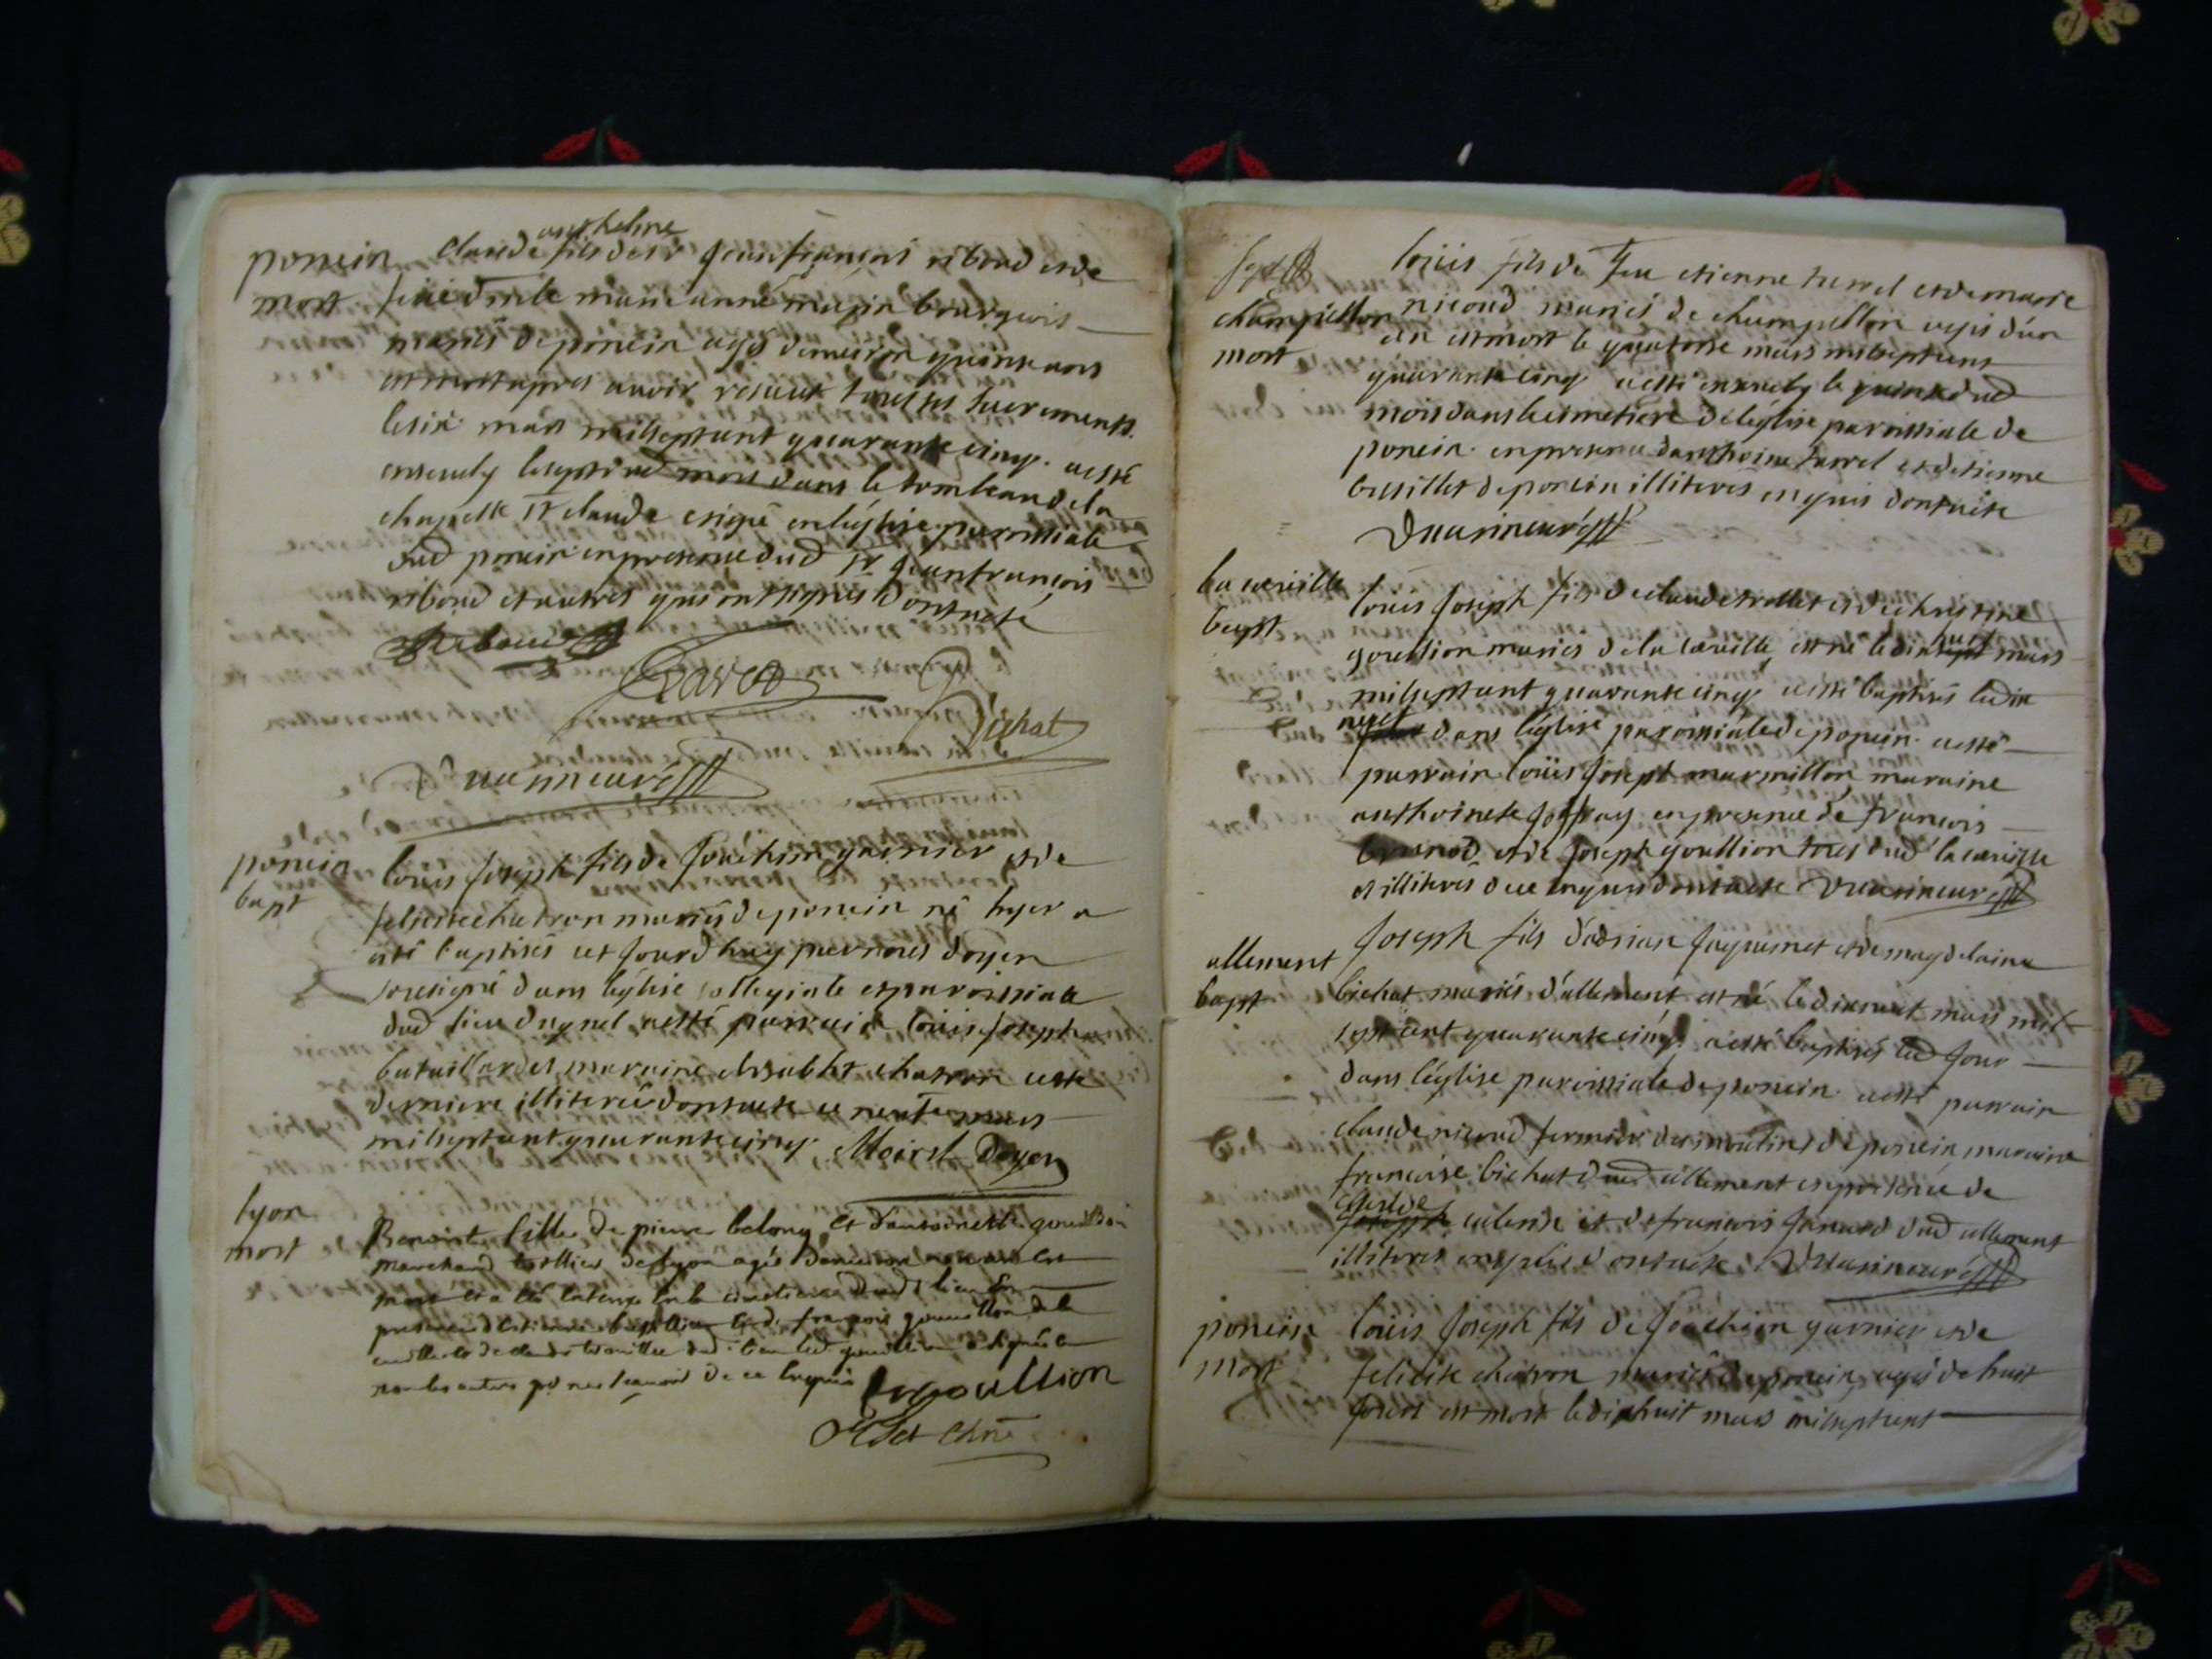 poncin
mort
claude anthelme fils de sr jean françois riboud et de
feüe dmlle marie anne mazin bourgeois
mariés de poncin agé denviron quinse ans
est mort apres avoir reseut tous ses sacrements
le six mars milseptcent quarante cinq. aesté
ensevely le sept dud mois dans le tombeau de la
chapelle st claude erigée en léglise parroissiale
dud poncin en presence dud sr jean françois
riboud et autres qui ont signés dont acte
Riboud
Vuarin curé
poncin
bapt
louis joseph fils de joachim garnier et de
felicite chatron mariés de poncin né hyer a
été baptisés cet jourdhuy par nous doyen
sousigné dans léglise collegiale et parroissiale
dud lieu duquel aesté parrain loüis joseph
bataillard et maraine elisabht chatron cette
derniere illiterée dont acte ce neuf mars
milseptcent quarante cinq. Moirel Doyen
lyon
mort
Benoist fille de pierre belong et d'antoinette goullion
marchand de lyon agés denviron un an est
mort et a été enterré dans le cimetiere dud lieu en
presence d'etienne et de françois goullion de la
goullion a signé et
non les autres pour ne sçavoir de ce enquis
fr goullion
champillon
mort
loüis fils de feu etienne turrel et de marie
nicoud mariés de champillon agés d'un
an est mort le quatorse mars milseptcens
quarante cinq aesté ensevely le quinse dud
mois dans le cimetiere de léglise parroissiale de
poncin en presence danthoine turrel et detienne
bresillet de poncin illiterés enquis dont acte
Vuarin curé
la cueille
bapt
loüis joseph fils de claude trollet et de christine
goullion mariés de la cueille est né le dix huit mars
milseptcent quarante cinq aesté baptisés le dix
neuf dans léglise paroissiale de poncin. aesté
parrain loüis joseph marmillon maraine
anthoinete joffray en presence de françois
brunod et de joseph goullion tous dud la cueille
et illiterés de ce enquis dont acte Vuarin curé
allement
bapt
joseph fils d'adrian jaquemet et de magdelaine
bichat mariés d'allement est né le dixneuf mars mil
septcent quarante cinq. aesté baptisés led jour
dans léglise paroissiale de poncin aesté parrain
claude nicoud fermier des moulins de poncin maraine
francoise bichat dud allement en presence de
claude et de françois janard dud allement
illiterés enquis dont acte. Vuarin curé
poncin
mort
loüis joseph fils de joachim garnier et de
felicite chatron mariés de poncin agés de huit
jours est mort le dixhuit mars milseptcent